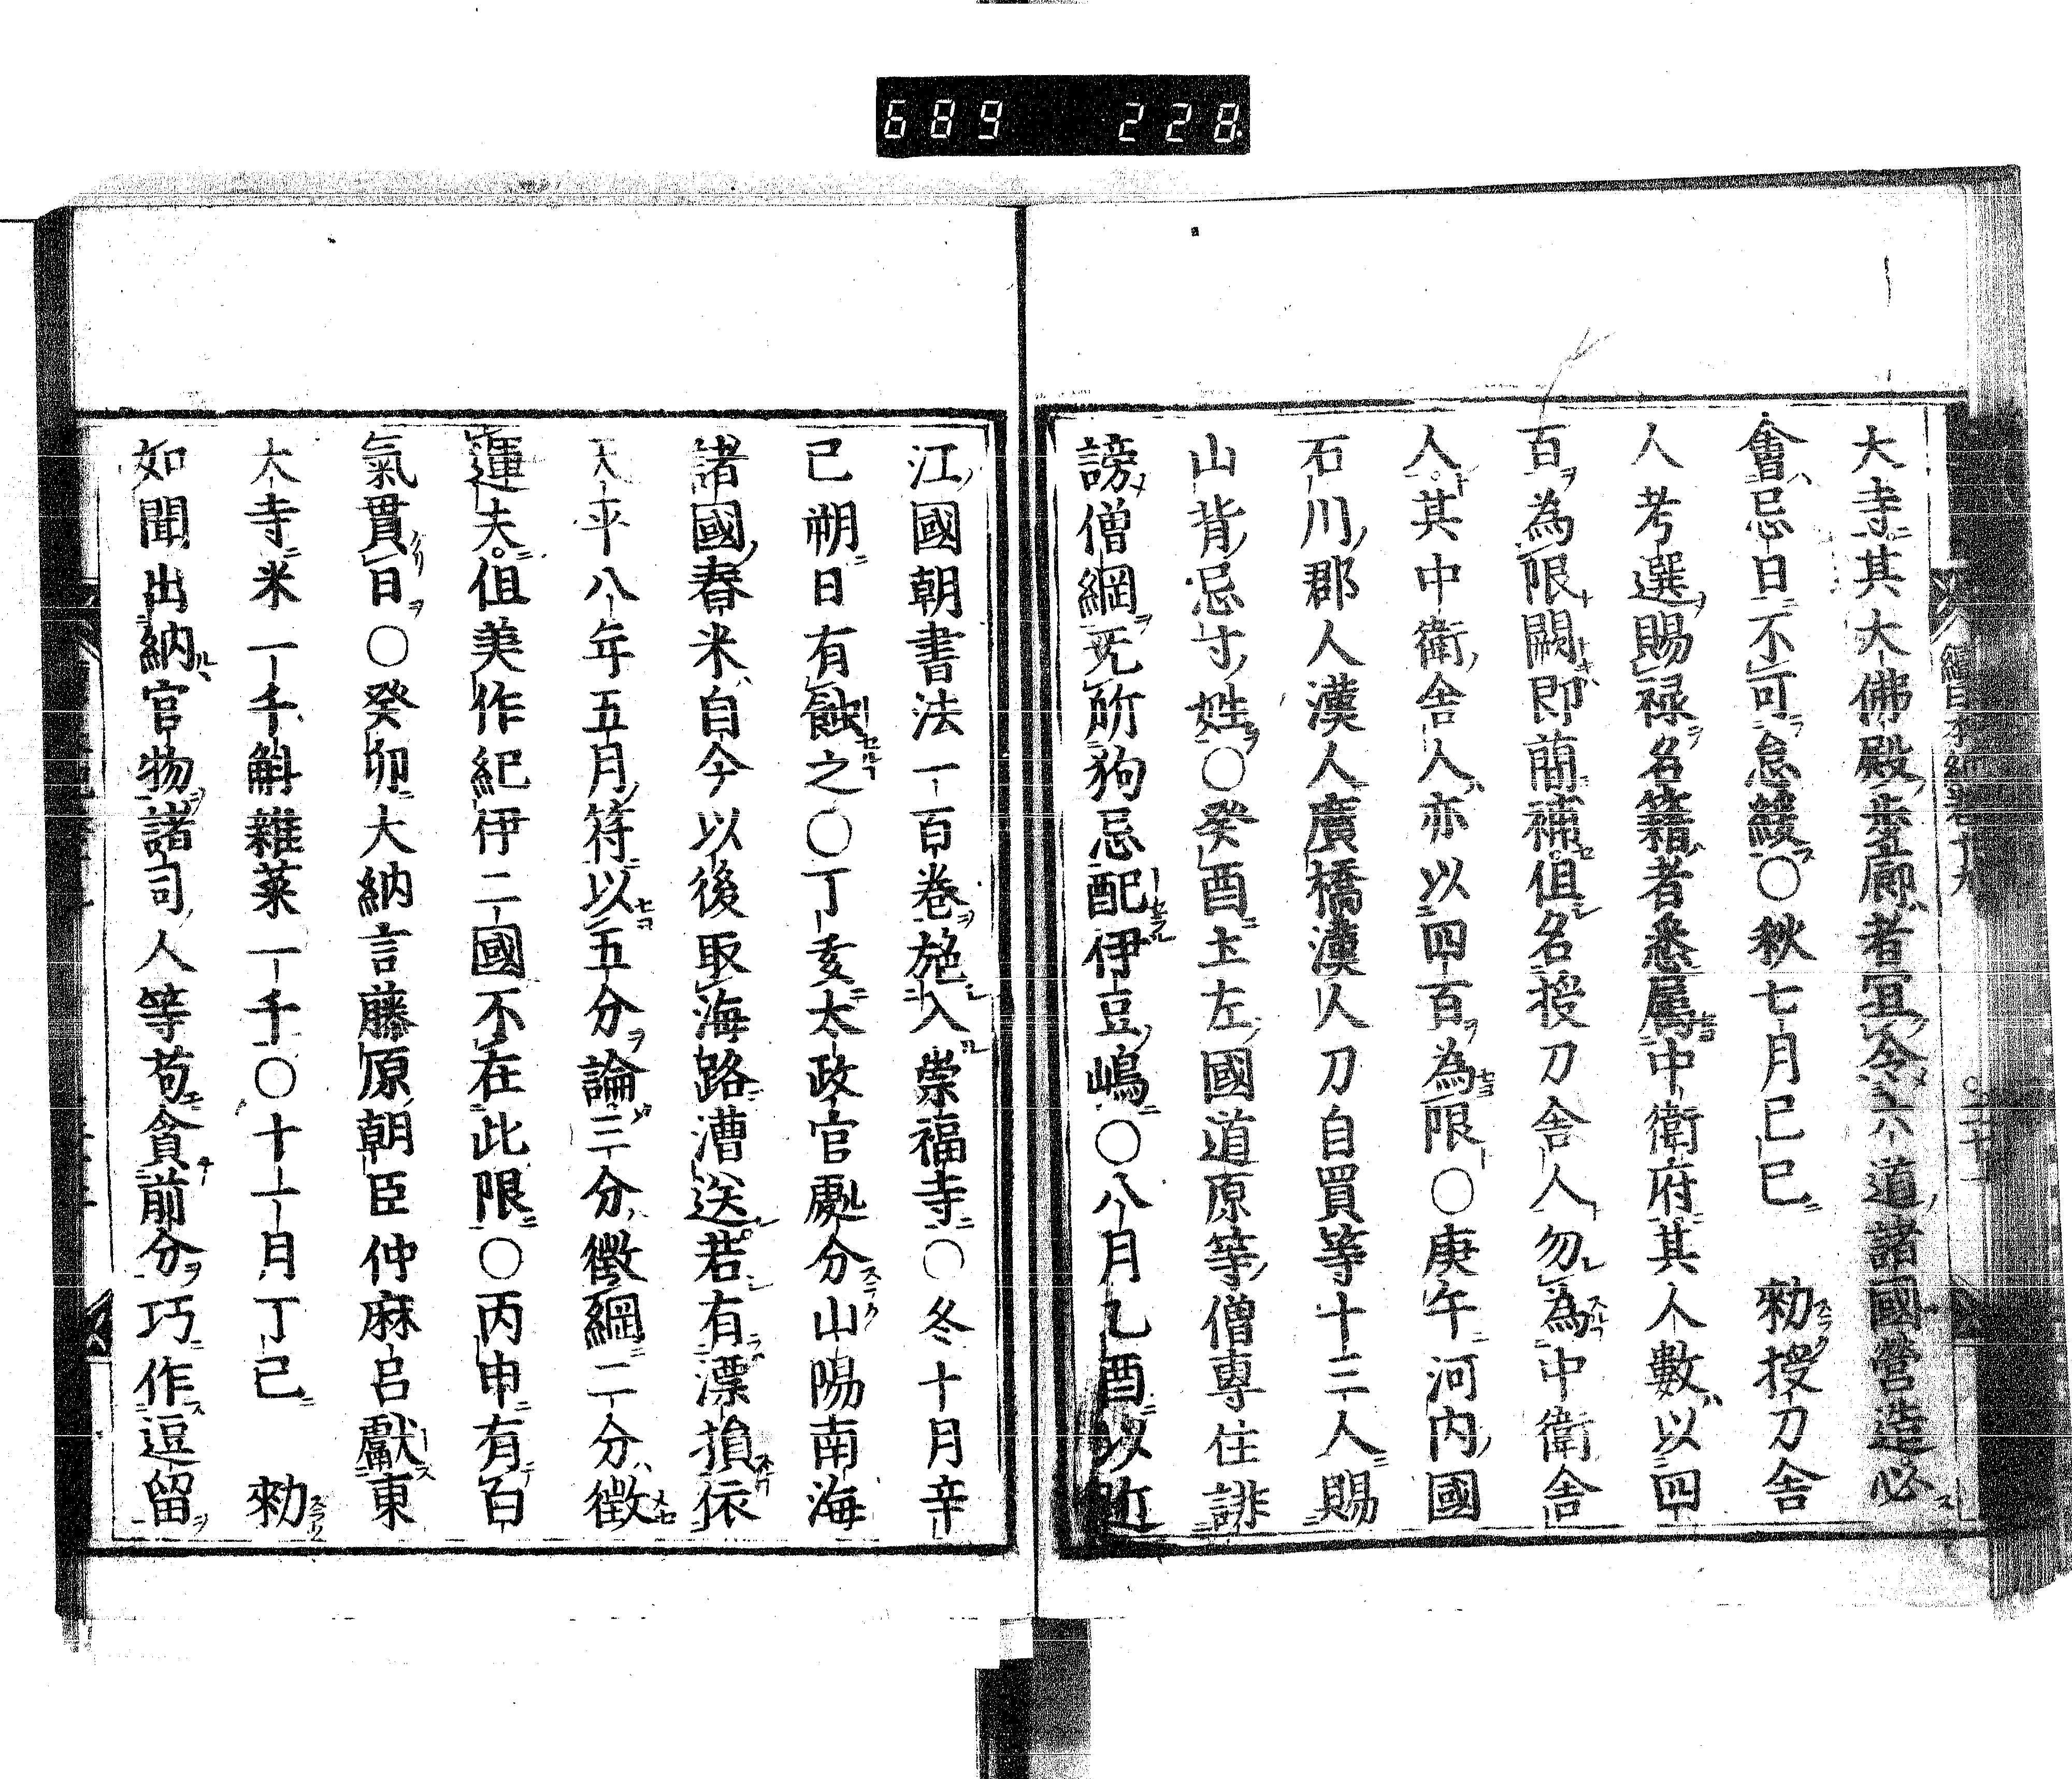 689 228
大寺其大佛殿歩廊者宜令六道諸國營造必
會忌日不可怠緩○秋七月己巳 勅授刀舍
人考選賜禄名籍者悉属中衛府其人數以四
百為限闕即簡補但名授刀舍人勿為中衛舍
人其中衛舍人亦以四百為限○庚午河内國
石川郡人漢人廣橋漢人刀自買等十三人賜
山背忌寸姓○癸酉土左國道原寺僧專住誹
謗僧綱无所拘忌配伊豆嶋○八月乙酉以近
江國朝書法一百卷施入崇福寺○冬十月辛
巳朔日有蝕之○丁亥太政官處分山陽南海
諸國舂米自今以後取海路漕送若有漂損依
天平八年五月符以五分論三分徴綱二分徴
運夫但美作紀伊二國不在此限○丙申有百
氣貫日○癸卯大納言藤原朝臣仲麻呂獻東
大寺米一千斛雜菜一千○十一月丁巳 勅
如聞出納官物諸司人等苟貪前分巧作逗留